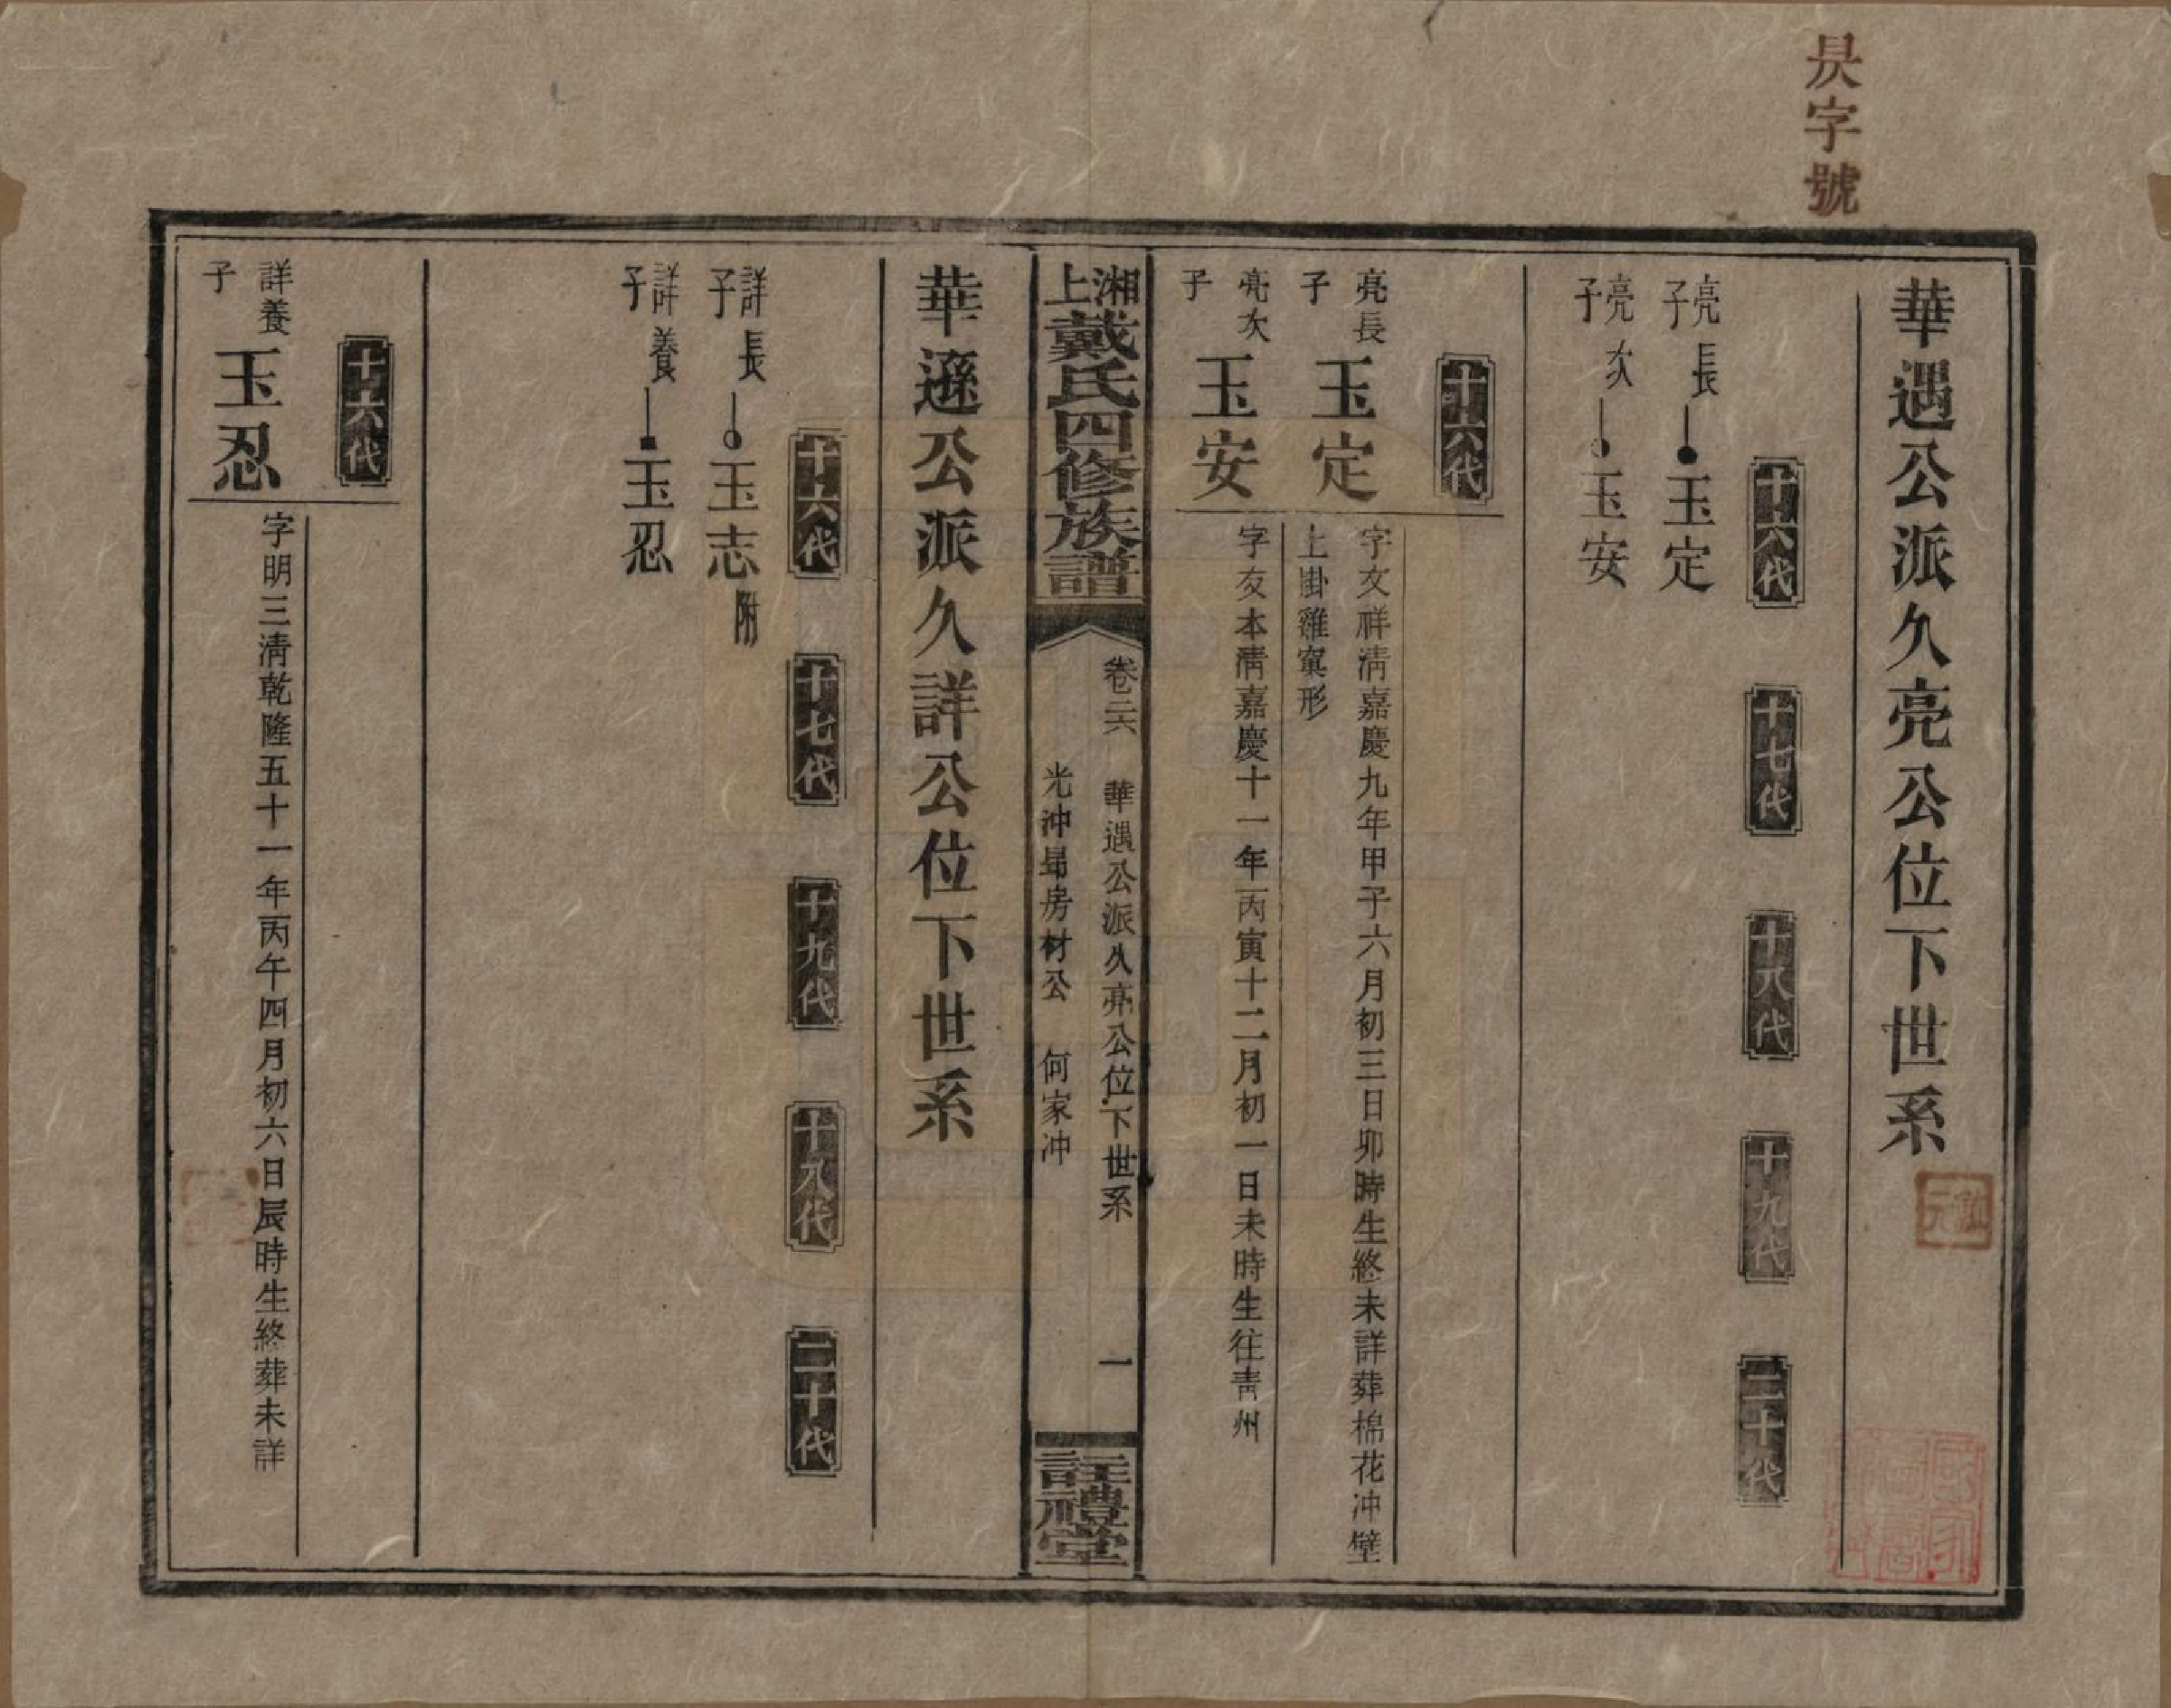 昃字號
華遇公派久亮公位下世系
十六代
十七代
十八代
十九代
二十代
亮長子
玉定
亮次子
玉安
十六代
亮長子
玉定
字文祥淸嘉慶九年甲子六月初三日卯時生終未詳葬棉花冲壁
上掛雞窠形
亮次子
玉安
字友本淸嘉慶十一年丙寅十二月初一日未時生往靑州
湘上戴氏四修族譜
卷二六
華遇公派久亮公位下世系
光冲昻房材公
何家冲
一
註禮堂
華遜公派久詳公位下世系
十六代
十七代
十九代
十八代
二十代
詳長子
玉志附
詳養子
玉忍
十六代
詳養子
玉忍
字明三淸乾隆五十一年丙午四月初六日辰時生終葬未詳